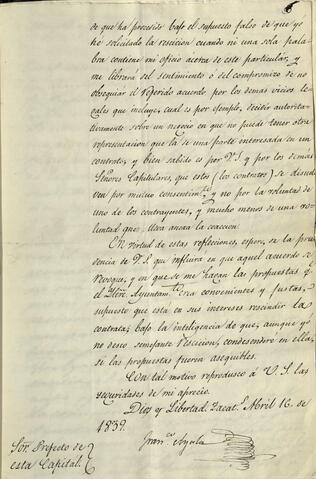 de que ha procedido bajo el supuesto falso de que yo
he solicitado la rescicion cuando ni una sola pala-
bra contiene mi oficio acerca de este particular, y
me librará del sentimiento ó del compromizo de no
obsequiar el referido acuerdo por los demas vicios le-
gales que incluye, cual es por ejemplo, decidir autorita-
tivamente sobre un negocio en que no puede tener otra
representacion que la de una parte interesada en un
contrato, y bien sabido es por V.S. y por los demás
Señores Capitulares, que estos (los contratos) se disuel-
ven por mutuo consentimto. y no por la voluntad de
uno de los contrayentes, y mucho menos de una vo-
luntad que lleva anexa la coaccion.
En virtud de estas reflecciones, espero, de la pru-
dencia de V.S. que influirá en que aquel acuerdo se
revoque, y en que se me hagan las propuestas q.
el Iltre. Ayuntamto. crea convenientes y justas,
supuesto que está en sus intereses rescindir la
contrata; bajo la inteligencia de que, aunque yo
no deseo semejante rescicion, condesenderé en ella,
si las propuestas fueren asequibles.
Con tal motivo reproduzco á V.S. las
seguridades de mi aprecio.
Dios y Libertad. Zacats. Abril 16 de
1839.
Franco. Ayala
Sor. Prefecto de
esta Capital.